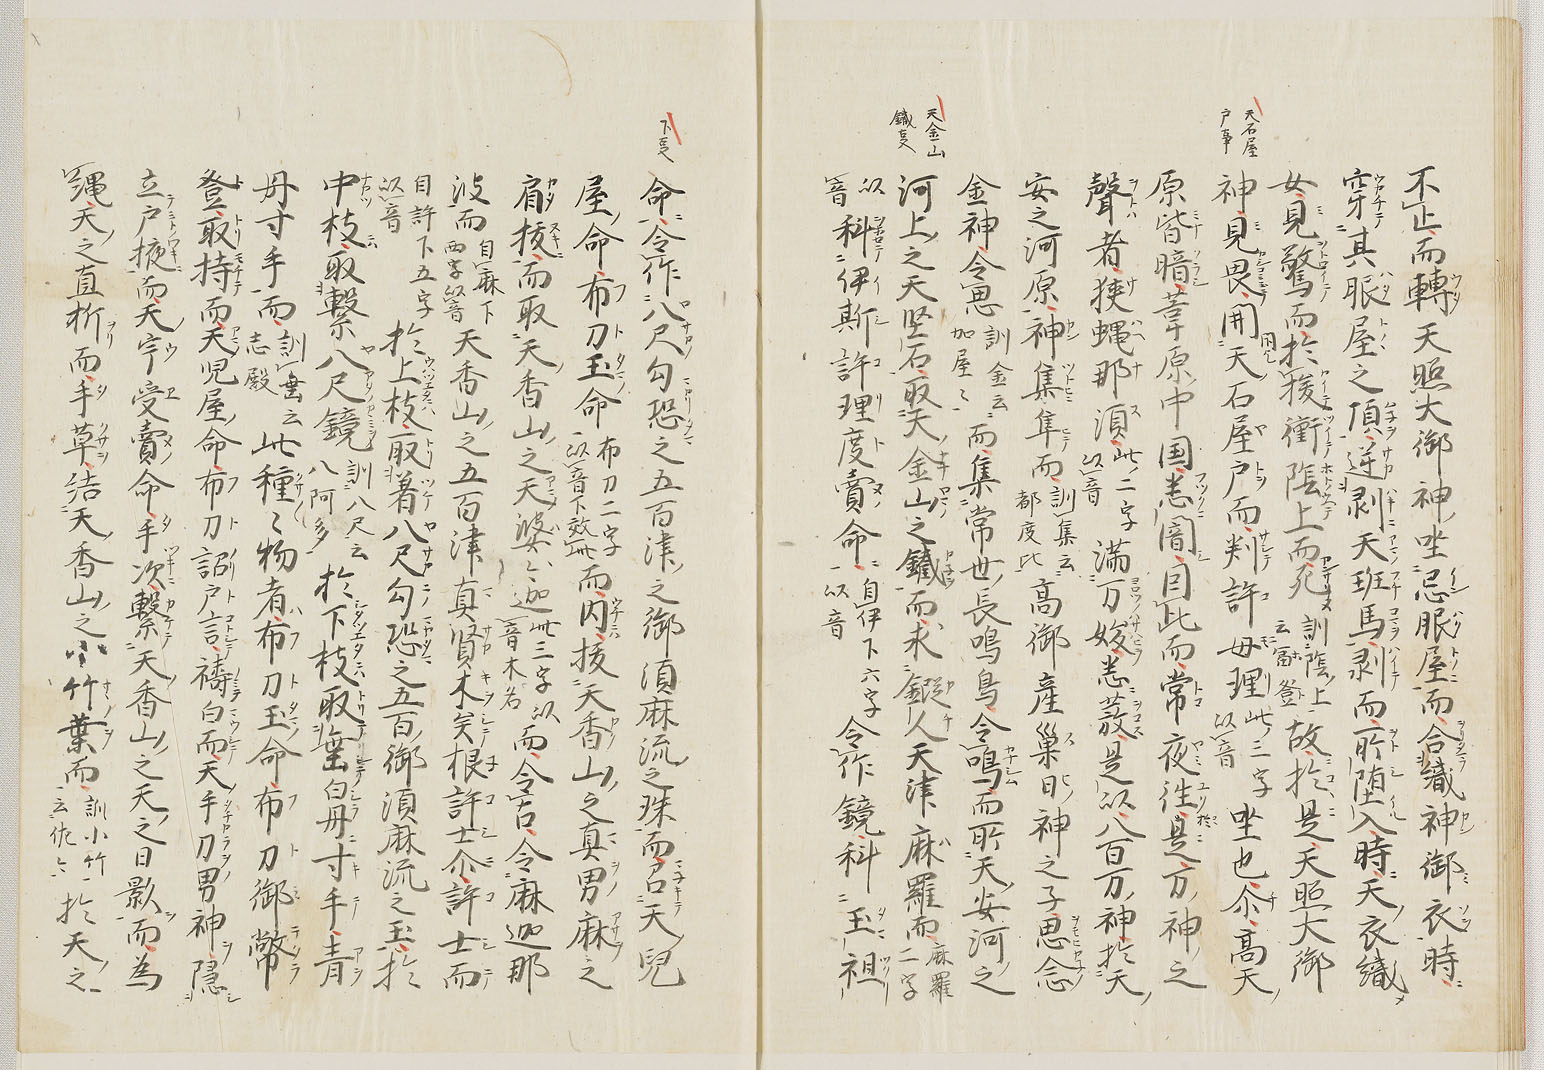 天石屋
戸事
天金山
鐵事
不止而轉天照大御神坐忌服屋而令織神御衣時
穿其服屋之頂逆剥天斑馬剥而所堕入時天衣織
女見驚而於梭衝陰上而死訓陰上云富登故於是天照大御
神見畏開天石屋戸而刺許母理此三字以音坐也尒高天
原皆暗葦原中国悉闇因此而常夜往是万神之
聲者狭蝿那須此二字以音満万妖悉發是以八百万神於天
安之河原神集集而訓集云都度比高御産巣日神之子思念
金神令思訓金云加屋〻而集常世長鳴鳥令鳴而所天安河之
河上之天堅石取天金山之鐵而求鍛人天津麻羅而麻羅二字
以音科伊斯許理度賣命自伊下六字以音令作鏡科玉祖
命令作八尺勾𤧚之五百津之御須麻流之珠而召天兒
屋命布刀玉命布刀二字以音下效此而内抜天香山之真男麻之
肩抜而取天香山之天婆〻迦此三字以音木名而令占令麻迦那
波而自麻下四字以音天香山之五百津真賢木矣根許士尒許士而
自許下五字以音於上枝取著八尺勾𤧚之五百御須麻流之玉於
中枝取繋八尺鏡訓八尺云八阿多於下枝取垂白丹寸手青
丹寸手而訓垂云志殿此種〻物者布刀玉命布刀御幣
登取持而天児屋命布刀詔戸言祷白而天手刀男神隠
立戸掖而天宇受賣命手次繋天香山之天之日影而為
縄天之真折而手草結天香山之小竹葉而訓小竹云佐〻於天之